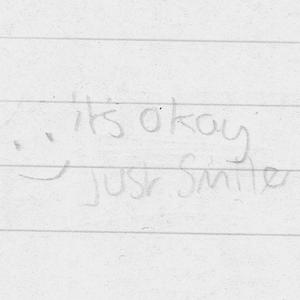 it's okay
just smile